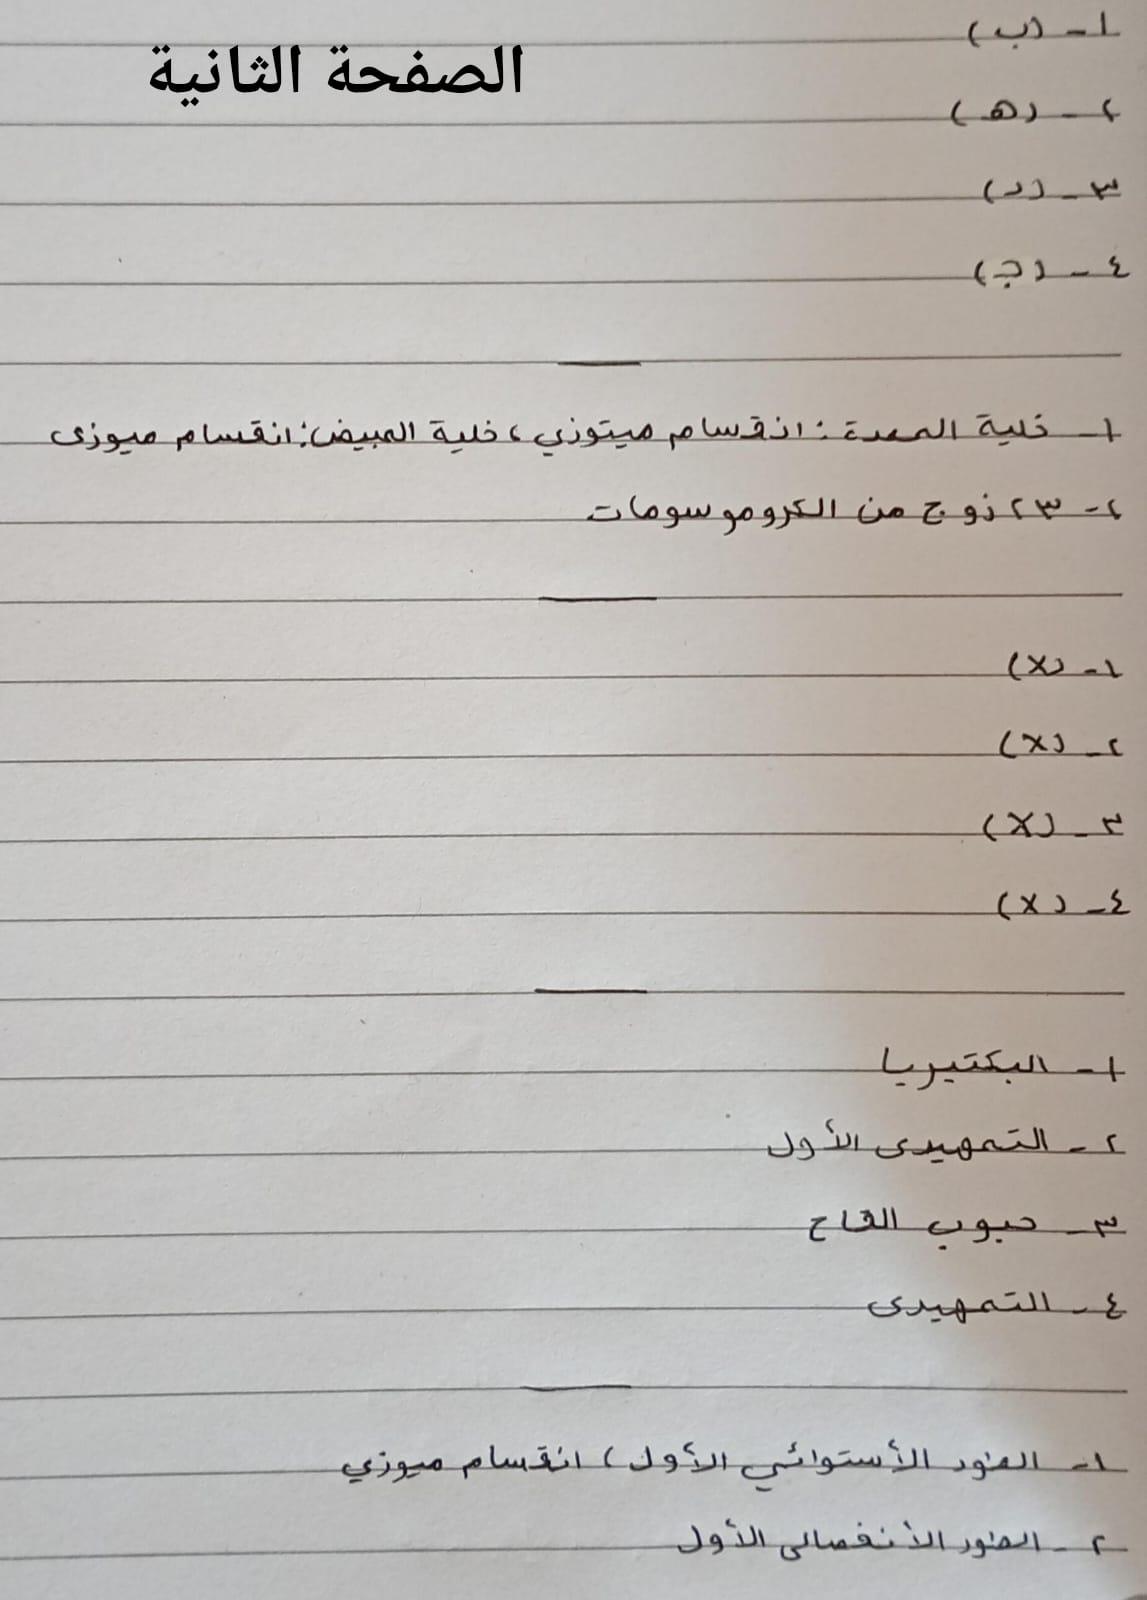 الصفحة الثانية
١- (ب)
٢- (هـ)
٣- (د)
٤- (جـ)
١- خلية المعدة: انقسام ميتوزي، خلية المبيض: انقسام ميوزى
٢- ٢٣ زوج من الكروموسومات
١- (X)
٢- (X)
٣- (X)
٤- (X)
١- البكتيريا
٢- التمهيدى الأول
٣- حبوب القاح
٤- التمهيدى
١- الطور الأستوائي الأول، انقسام ميوزي
٢- الطور الأنفصالى الأول